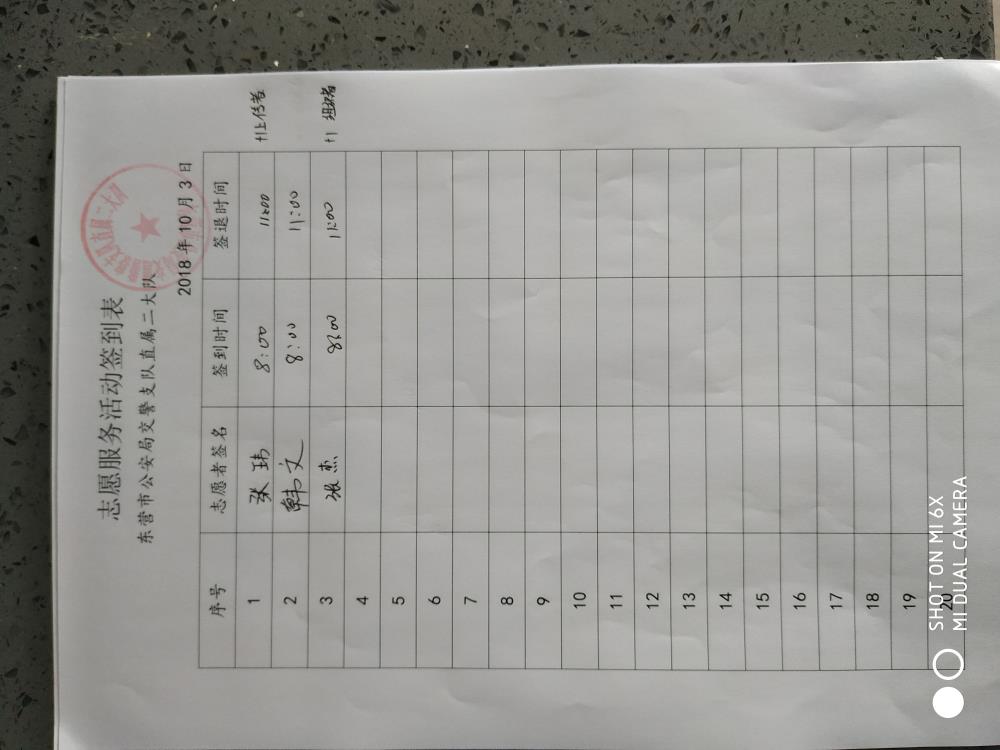 志愿服务活动签到表
东营市公安局交警支队直属二大队
2018年10月3日
序号 志愿者签名 签到时间 签退时间
1 张玮 8:00 11:00 +1上传者
2 韩文 8:00 11:00
3 张杰 8:00 11:00 +1 组织者
4
5
6
7
8
9
10
11
12
13
14
15
16
17
18
19
20
SHOT ON MI 6X
MI DUAL CAMERA